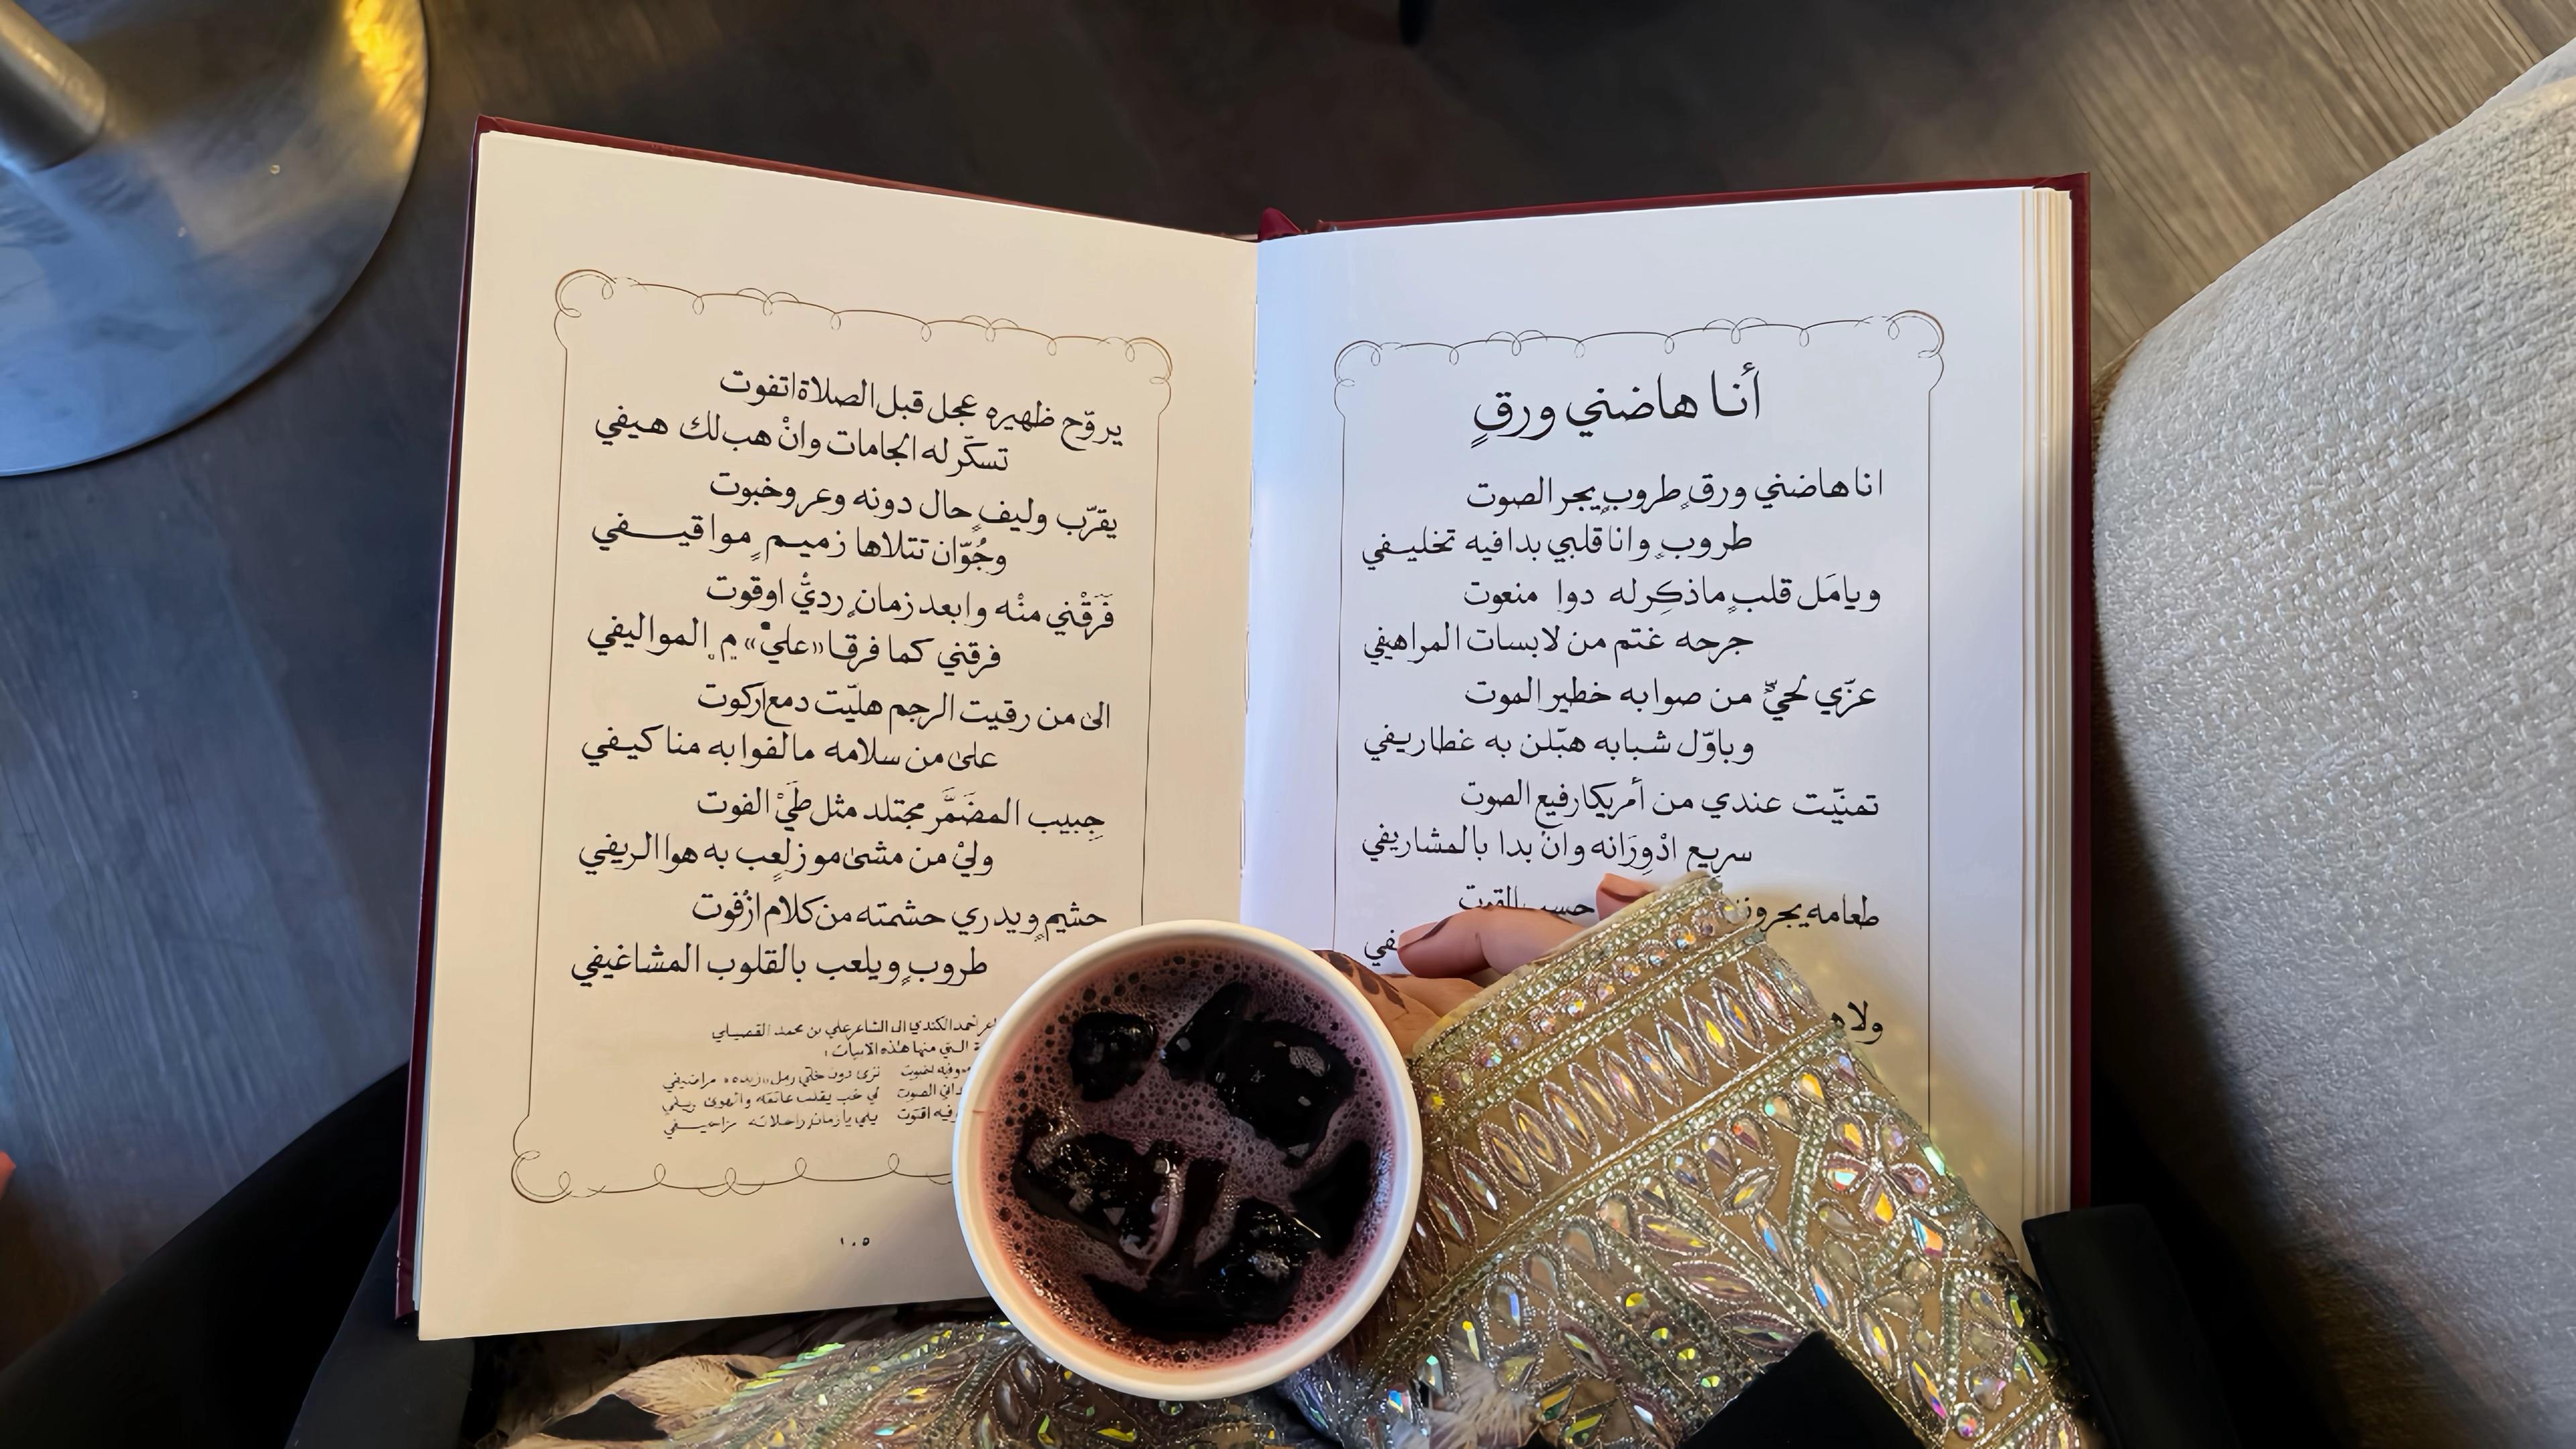 أنا هاضني ورقٍ
انا هاضني ورقٍ طروبٍ يجر الصوت
طروبٍ وانا قلبي بدا فيه تخليفي
ويامَل قلبٍ ماذكِر له دوا منعوت
جرحه غتم من لابسات المراهيفي
عزّي لحيٍّ من صوابه خطير الموت
وباوّل شبابه هبّلن به غطاريفي
تمنّيت عندي من أمريكا رفيع الصوت
سريع اذْورَانه وانْ بدا بالمشاريفي
طعامه يجرون حسب القوت
في
ولا
يروّح ظهيره عجل قبل الصلاة اتفوت
تسكّر له الجامات وانْ هب لك هيفي
يقرّب وليفٍ حال دونه وعر وخبوت
وجُوّان تتلاها زميمٍ مواقيفي
فَرَقْني منْه وابعد زمانٍ رديْ اوقوت
فرقني كما فرقا «عليْ» مِ المواليفي
الى من رقيت الرجم هليّت دمع اركوت
على من سلامه مالفوا به مناكيفي
جِبيب المضَمَّر مجتلد مثل طَيْ الفوت
وليْ من مشى موز لعِب به هوا الريفي
حشيمٍ ويدري حشمته من كلام ازْفوت
طروبٍ ويلعب بالقلوب المشاغيفي
أحمد الكندي الى الشاعر علي بن محمد القصيلي
التي منها هذه الابيات:
نرى دون خلي رمل «زبده» مراضيفي
الصوت
يلي يا زمانٍ راحلاته مزاحيفي
١٠٥